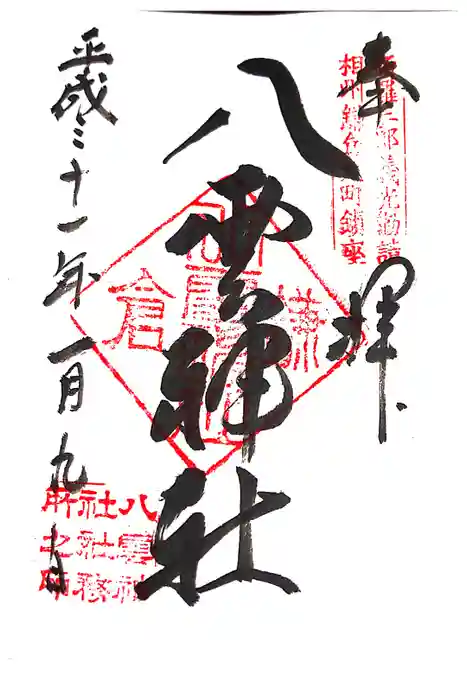 奉拝
新羅三郎義光勧請
相州鎌倉大町鎮座
八雲神社
鎌倉
八雲神
社社務
所之印
平成三十一年一月九日